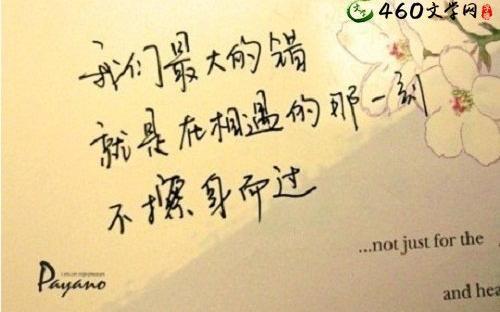 460文学网
我们最大的错
就是在相遇的那一刻
不擦身而过
...not just for the
Payano
and hea